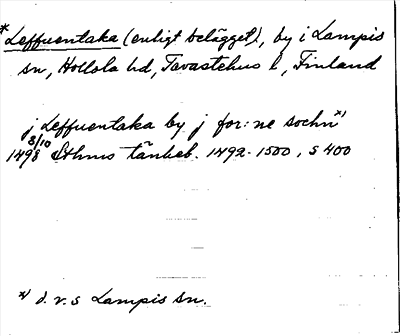 * Leffuentaka (enligt belägget), by i Lampis
sn, Hollola hd, Tavastehus l, Finland
j Leffuentaka by j for:ne sochn *)
3/10
1498 Sthms tänkeb. 1492-1500, s 400
*) d.v.s Lampis sn.